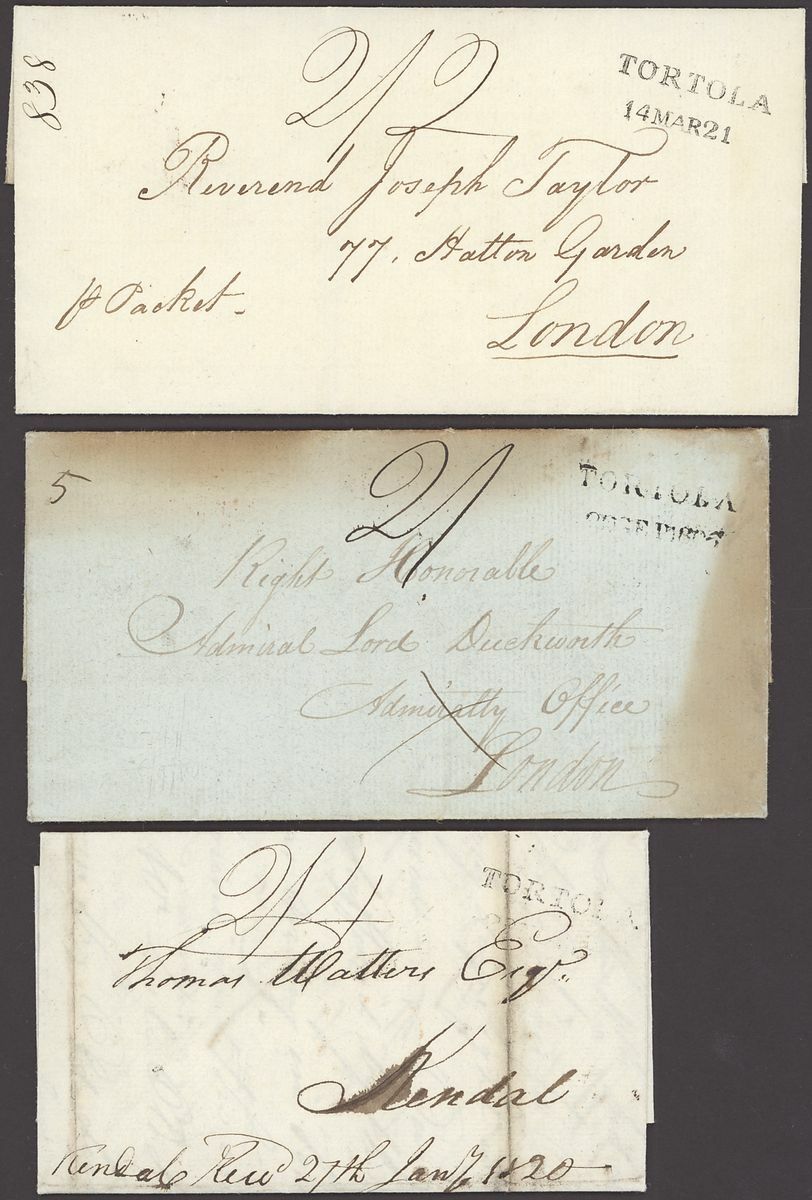 838
2/2
TORTOLA
14MAR21
Reverend Joseph Taylor
77, Hatton Garden
p Packet
London
5
2/
TORTOLA
Right Honorable
Admiral Lord Duckworth
Admiralty Office
London
TORTOLA
Thomas Esqr.
Kendal
Kendal Recd 27th Jany 1820